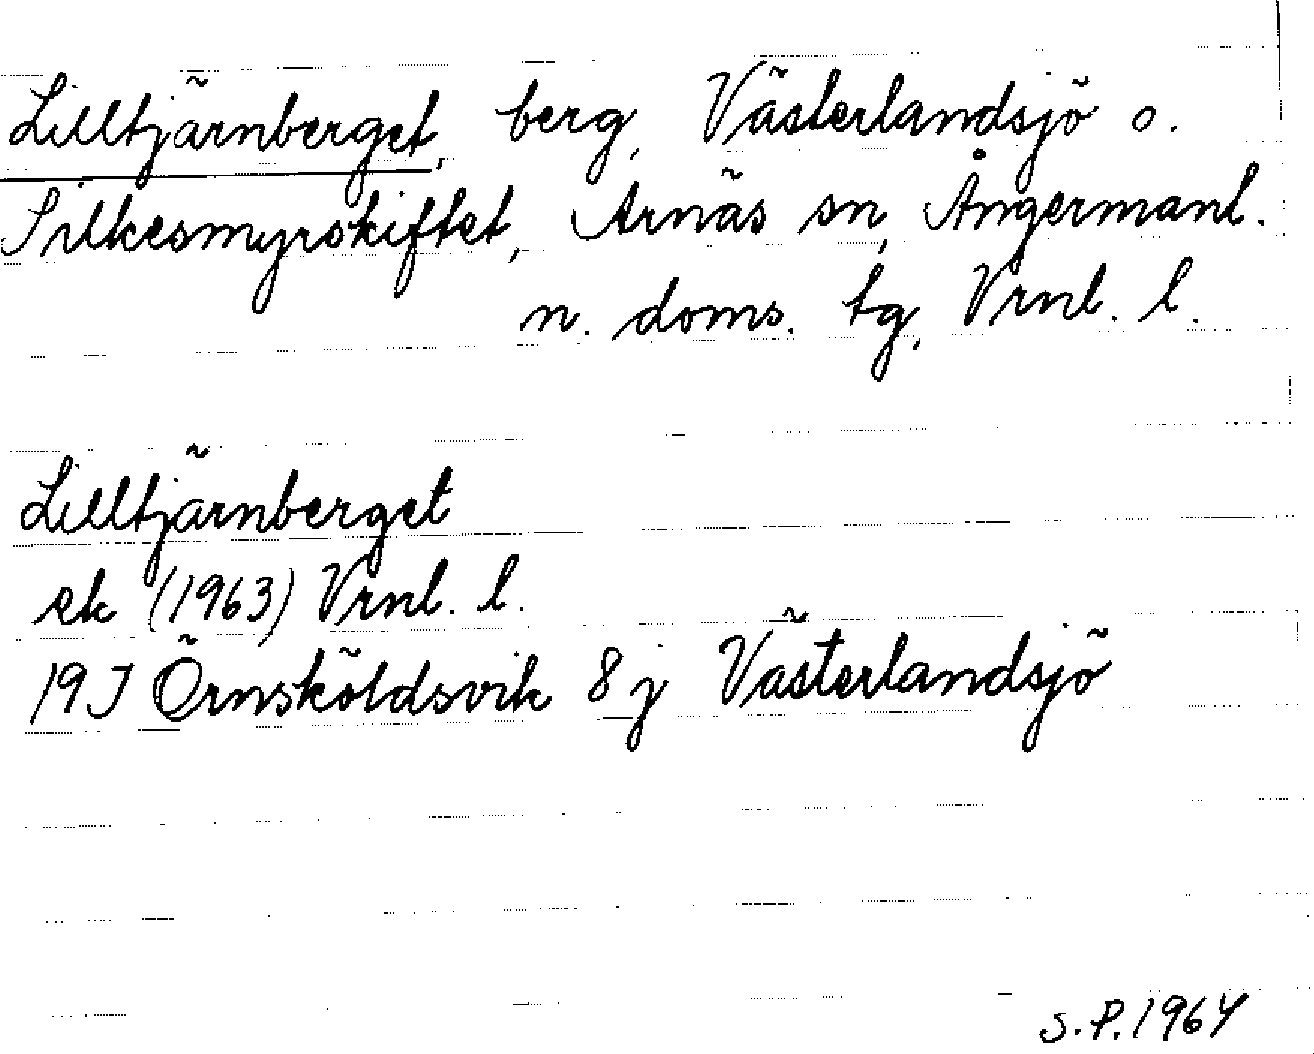 Lilltjärnberget, berg, Västerlandsjö o.
Silkesmyrskiftet, Arnäs sn, Ångermanl.
n. doms. tg, Vrnl. l.
Lilltjärnberget
ek (1963) Vrnl. l.
19J Örnsköldsvik 8j Västerlandsjö
S.P. 1964